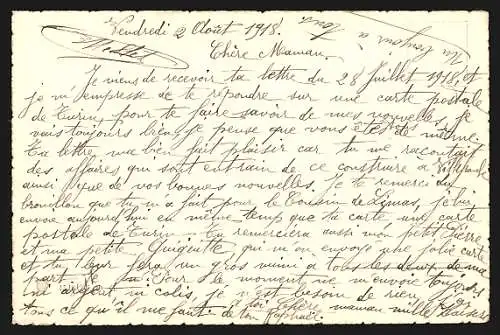 Vendredi 2 Août 1918.
Un toujours à
Chère Maman.
Je viens de recevoir ta lettre du 28 Juillet 1918, et
je m'empresse de te répondre sur une carte postale
de Turin, pour te faire savoir de mes nouvelles, je
vais toujours bien, je pense que vous êtes de même.
Ta lettre ma bien fait plaisir car tu me racontait
des affaires qui sont entrain de ce construire a
ainsi que de vos bonnes nouvelles. Je te remercie du
que tu m'a fait pour le Cousin de Limas, je lui
envoie aujourd'hui en même temps que ta carte une carte
postale de Turin. Tu remerciera aussi mon petit Pierre
et ma petite Guiguitte qui m'on envoyé une jolie carte
et tu leur fera un gros mimi a tous les deux de ma
part. Pour le moment ne m'envoie toujours
ni argent ni colis, je n'est besoin de rien
tous ce qu'il me faut. Ton maman mille baisers
de ton Raphaël.